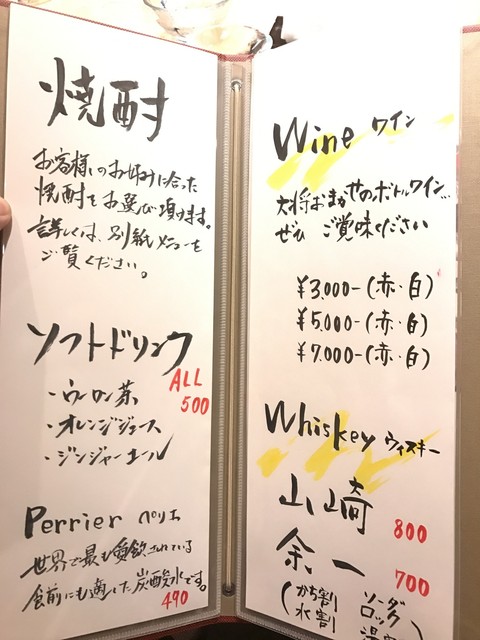 焼酎
お客様のお好みに合った
焼酎をお選び頂けます。
詳しくは、別紙メニューを
ご覧ください。
ソフトドリンク
ALL
500
・ウーロン茶
・オレンジジュース
・ジンジャーエール
Perrier ペリエ
世界で最も愛飲されている
食前にも適した炭酸水です。
490
Wine ワイン
大将おまかせのボトルワイン...
ぜひ ご賞味ください
¥3,000-(赤・白)
¥5,000-(赤・白)
¥7,000-(赤・白)
Whiskey ウイスキー
山崎 800
余一 700
(水割 ソーダ
ロック